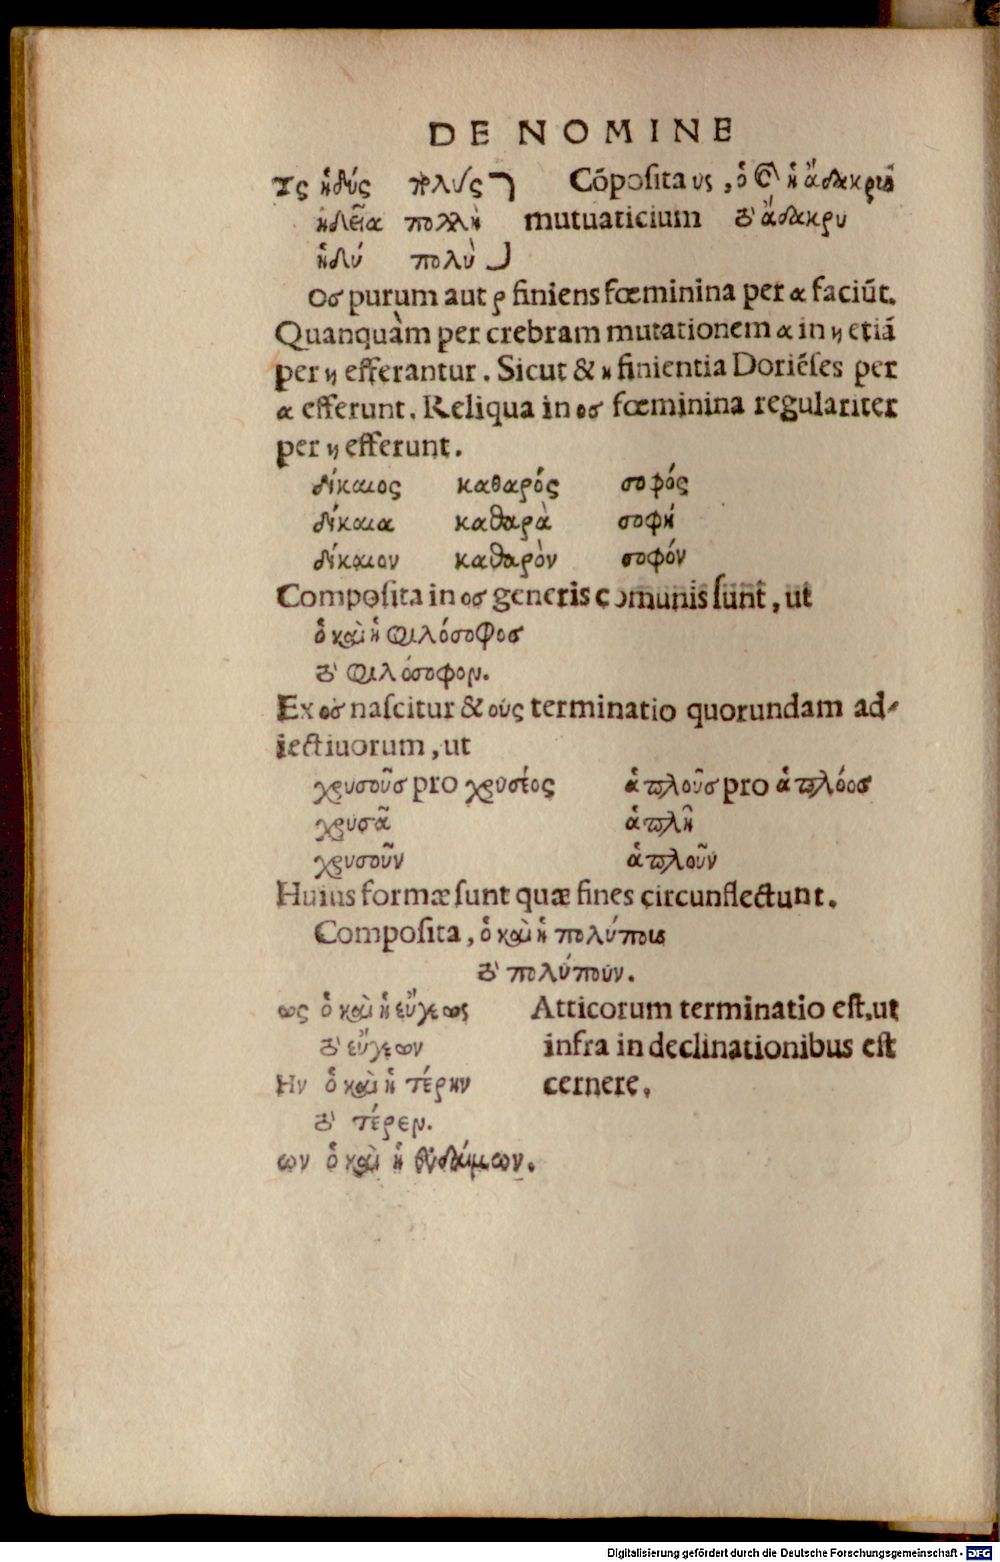 DE NOMINE
Υς ἡδύς πολὺς Cōposita υς, ὁ καὶ ἡ ἄδακρυς
ἡδεῖα πολλὴ mutuaticium τὸ ἄδακρυ
ἡδύ πολὺ
Οσ purum aut ρ finiens fœminina per α faciūt.
Quanquàm per crebram mutationem α in η etiā
per η efferantur. Sicut & η finientia Doriēses per
α efferunt. Reliqua in οσ fœminina regulariter
per η efferunt.
δίκαιος καθαρός σοφός
δίκαια καθαρὰ σοφή
δίκαιον καθαρὸν σοφόν
Composita in οσ generis comunis sunt, ut
ὁ καὶ ἡ φιλόσοφοσ
τὸ φιλόσοφον.
Ex οσ nascitur & οὺς terminatio quorundam ad-
iectiuorum, ut
χρυσοῦσ pro χρυσέος ἁπλοῦσ pro ἁπλόοσ
χρυσᾶ ἁπλῆ
χρυσοῦν ἁπλοῦν
Huius formæ sunt quæ fines circunflectunt.
Composita, ὁ καὶ ἡ πολύπους
τὸ πολύπουν.
ως ὁ καὶ ἡ εὔγεως Atticorum terminatio est, ut
τὸ εὔγεων infra in declinationibus est
Ην ὁ καὶ ἡ τέρην cernere.
τὸ τέρεν.
ων ὁ καὶ ἡ εὐδαίμων.
Digitalisierung gefördert durch die Deutsche Forschungsgemeinschaft - DFG